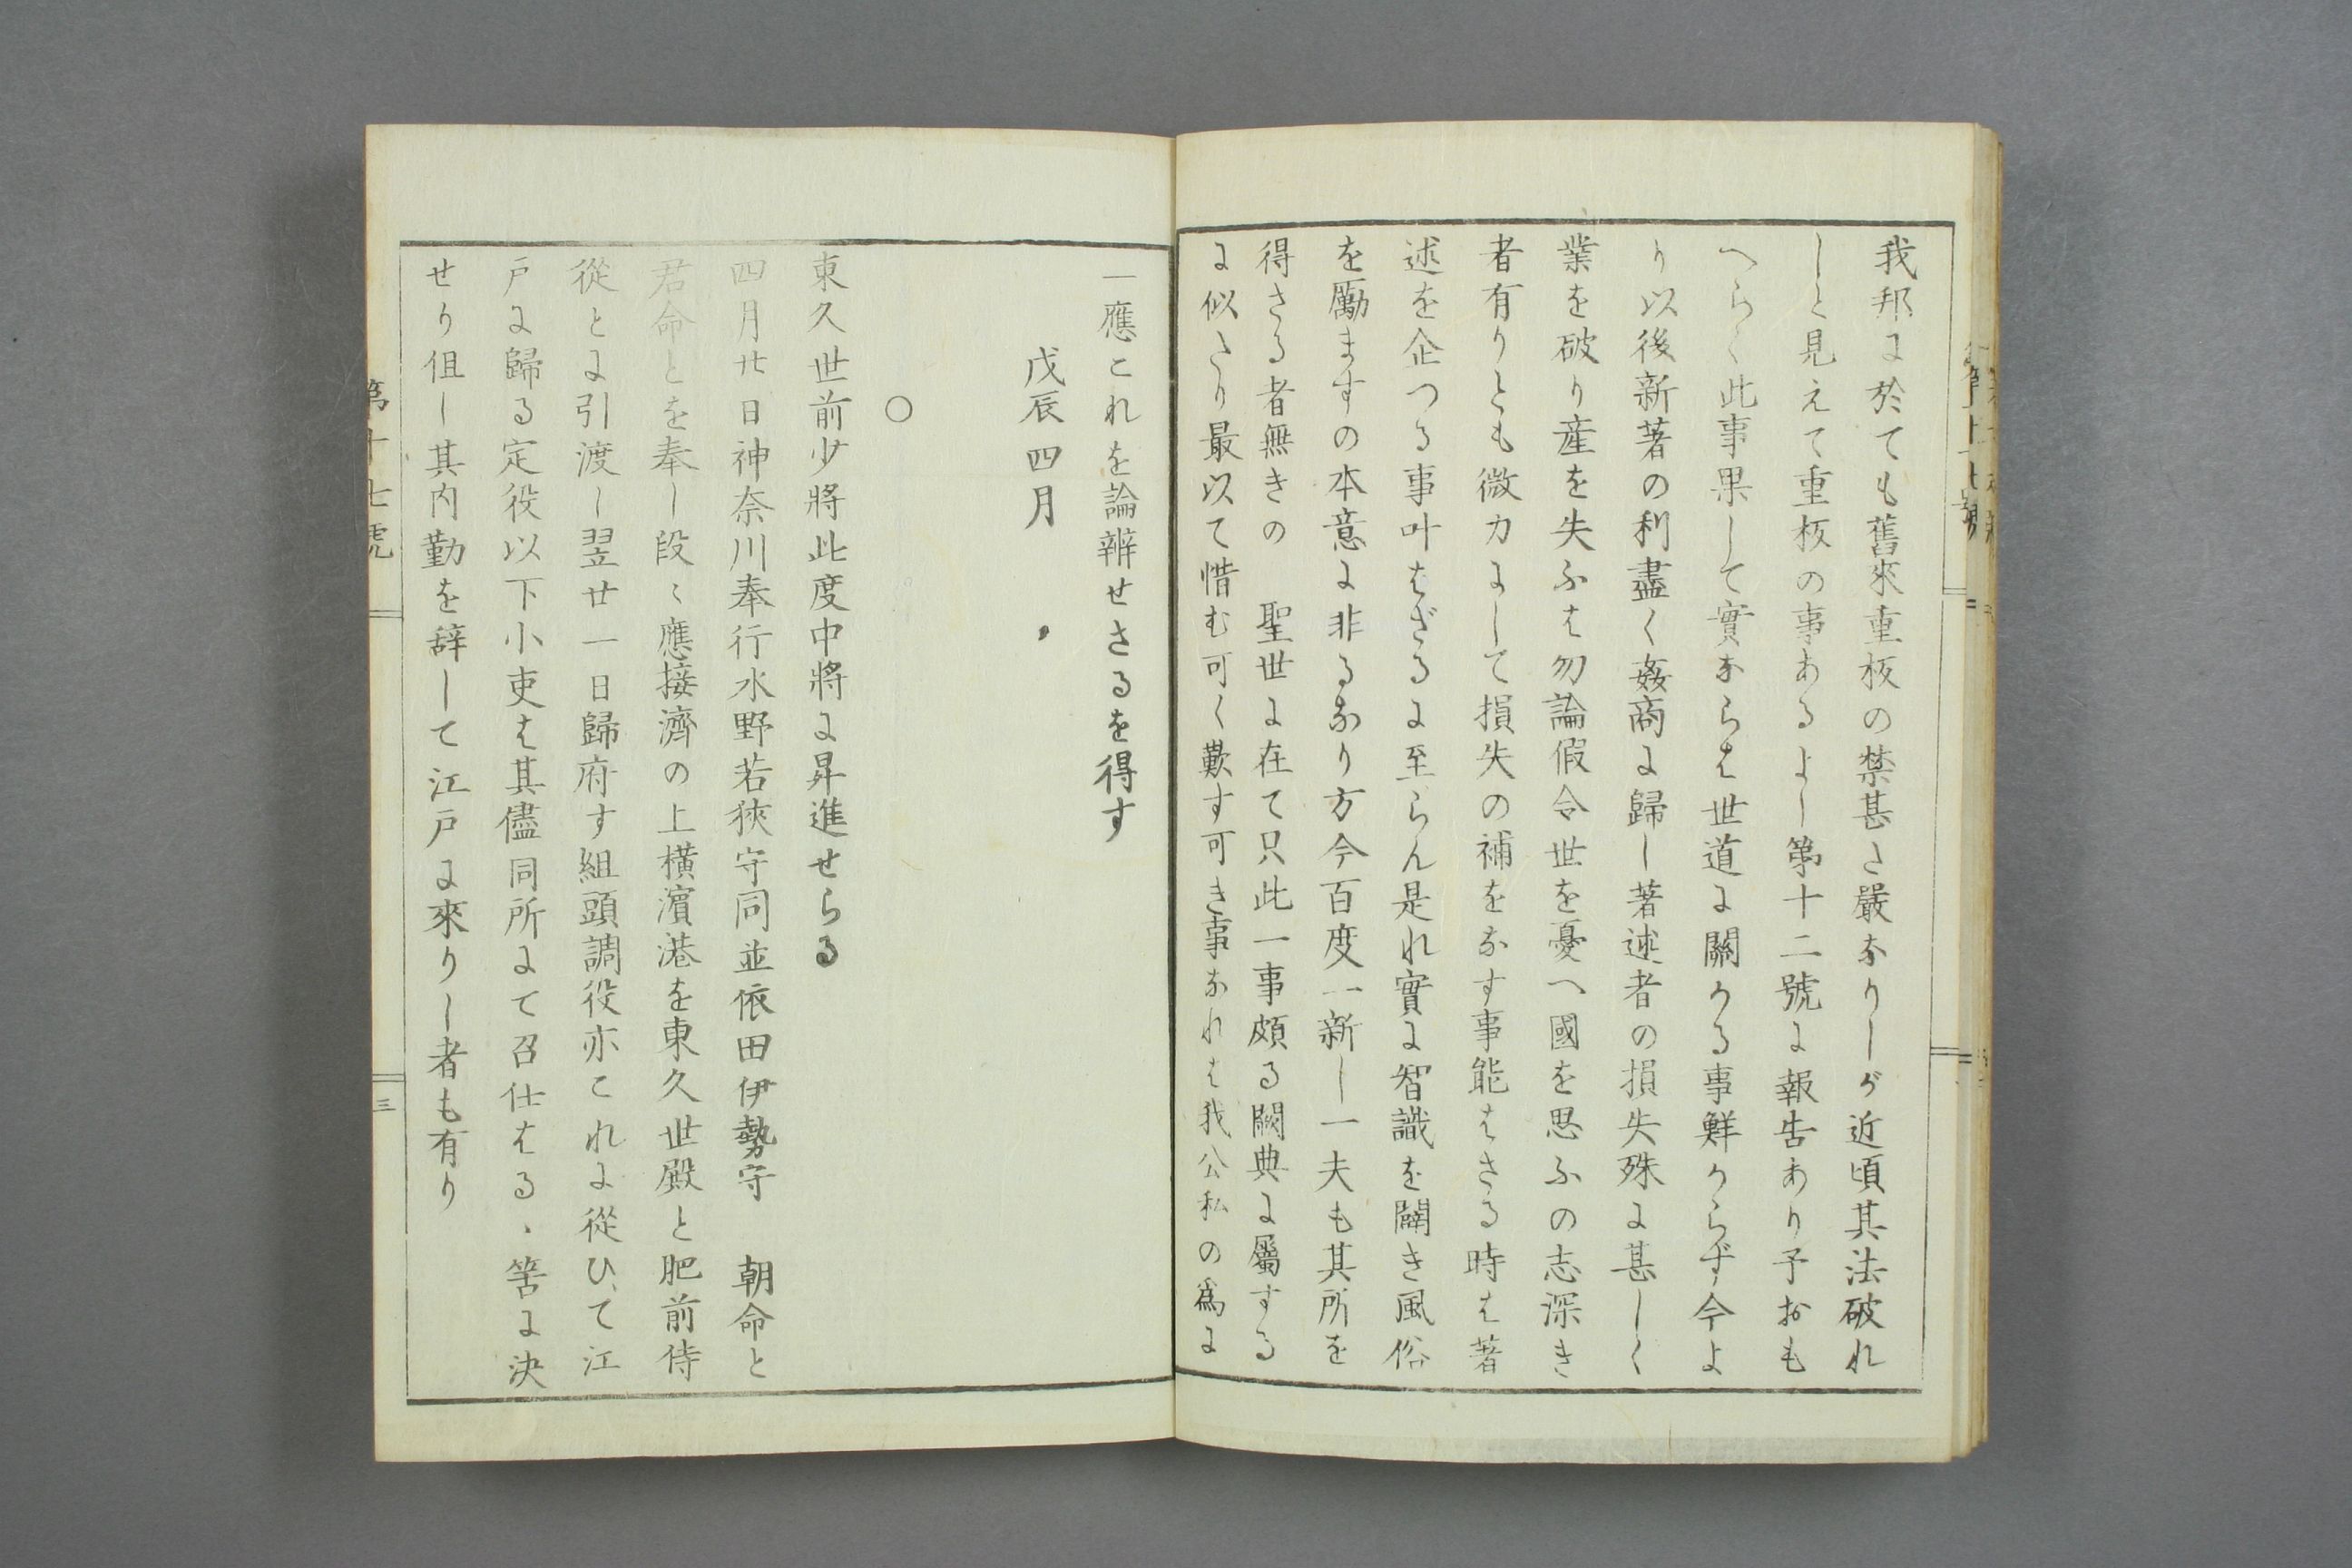 我邦に於ても舊來重板の禁甚さ嚴なりしが近頃其法破れ
しと見えて重板の事あるよし第十二號に報告あり予おも
へらく此事果して實ならは世道に關かる事鮮からず今よ
り以後新著の利盡く姦商に歸し著述者の損失殊に甚しく
業を破り産を失ふは勿論假令世を憂へ國を思ふの志深き
者有りとも微力にして損失の補をなす事能はさる時は著
述を企つる事叶はざるに至らん是れ實に智識を闢き風俗
を勵ますの本意に非るなり方今百度一新し一夫も其所を
得さる者無きの　聖世に在て只此一事頗る闕典に屬する
に似たり最以て惜む可く歎す可き事なれは我公私の爲に
一應これを論辨せさるを得す
戊辰四月
○
東久世前少將此度中將に昇進せらる
四月廿日神奈川奉行水野若狹守同並依田伊勢守　朝命と
君命とを奉し段々應接濟の上横濱港を東久世殿と肥前侍
從とに引渡し翌廿一日歸府す組頭調役亦これに從ひて江
戸に歸る定役以下小吏は其儘同所にて召仕はるゝ筈に決
せり但し其内勤を辞して江戸に來りし者も有り
第十七號
三